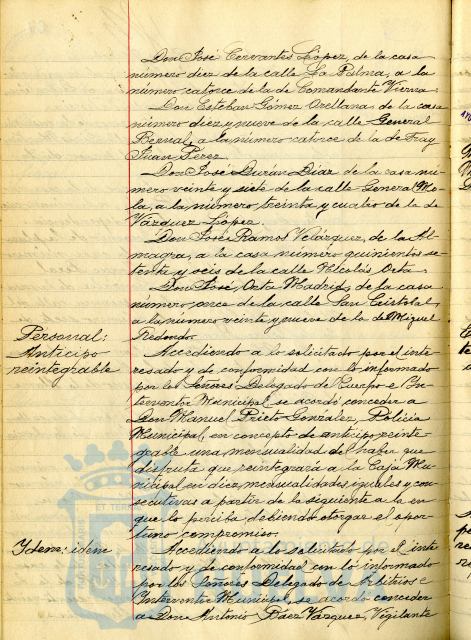 Don José Cervantes López, de la casa
número diez de la calle La Palma, a la
número catorce de la de Comandante Vierna.
Don Esteban Gómez Orellana, de la casa
número diez y nueve de la calle General
Bernal, a la número catorce de la de Fray
Juan Perez.
Don José Durán Diaz de la casa nú-
mero veinte y siete de la calle General Mo-
la, a la número treinta y cuatro de la de
Vázquez López.
Don José Ramos Velázquez, de la Al-
magra, a la casa número quinientos se-
tenta y seis de la calle Nicolás Orta.
Don José Orta Madrid, de la casa
número once de la calle San Cristobal,
a la número veinte y nueve de la de Miguel
Redondo.
Personal:
Anticipo
reintegrable
Accediendo a lo solicitado por el inte-
resado y de conformidad con lo informado
por los Señores Delegado de Cuerpo e In-
terventor Municipal, se acordó conceder a
Don Manuel Prieto González, Policia
Municipal, en concepto de anticipo reinte-
grable una mensualidad del haber que
disfruta que reintegrará a la Caja Mu-
nicipal en diez mensualidades iguales y con-
secutivas a partir de la siguiente a la en
que lo perciba debiendo otorgar el opor-
tuno compromiso.
Idem: idem
Accediendo a lo solicitado por el inte
resado y de conformidad con lo informado
por los Señores Delegado de Arbitrios e
Interventor Municipal, se acordó conceder
a Don Antonio Báez Vázquez, Vigilante
ET TERR